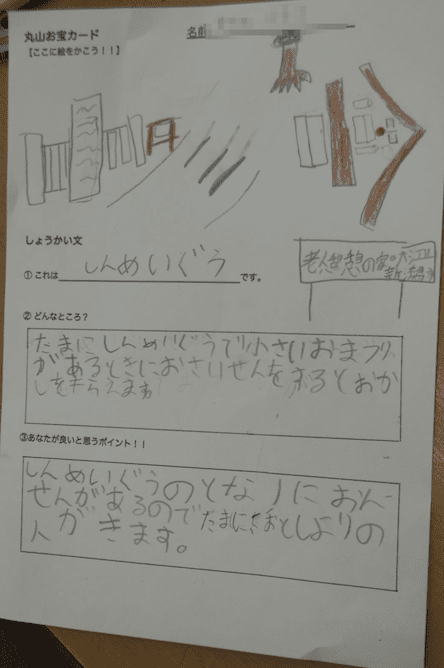 丸山お宝カード
名前
【ここに絵をかこう！！】
老人憩の家
しょうかい文
① これはしんめいぐうです。
② どんなところ？
たまにしんめいぐうで小さいおまつり
があるときにおさいせんをするとおか
しをもらえます
③あなたが良いと思うポイント！！
しんめいぐうのとなりにおん
せんがあるのでたまにおとしよりの
人がきます。